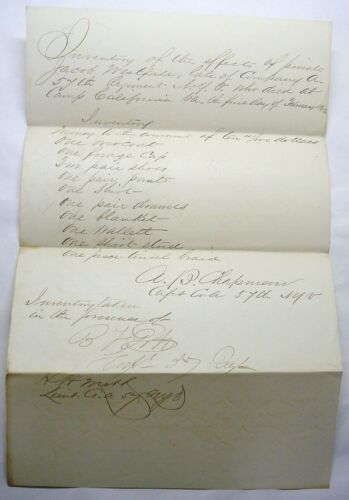 Inventory of the effects of private
Jacob Westfall, late of Company A
57th Regiment N.Y.V. who died at
Camp California Va. the first day of February 1862
Inventory
Money to the amount of ten dollars
One
One forage Cap
Two pair shoes
One pair pants
One Shirt
One pair drawers
One blanket
One Wallett
One shirt stud
One
A. B. Chapman
Capt Co A 57th NYV
Inventory taken
in the presence of
B
57 NYV
H H Mott
Lieut Co A 57 NYV